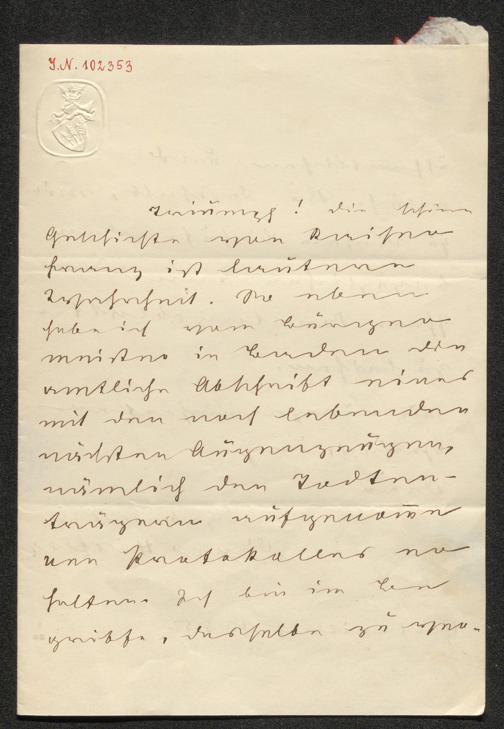 J.N. 102353
Triumpf! Die schöne
Geschichte von Kaiser
Franz ist lautere
Wahrheit. So eben
habe ich vom Bürger
meister in Baden die
amtliche Abschrift eines
mit den noch lebenden
nächsten Augenzeugen,
nämlich den Todten-
trägern aufgenom̅e
nen Protokolles er
halten. Ich bin im Be
griffe, dasselbe zu ver-